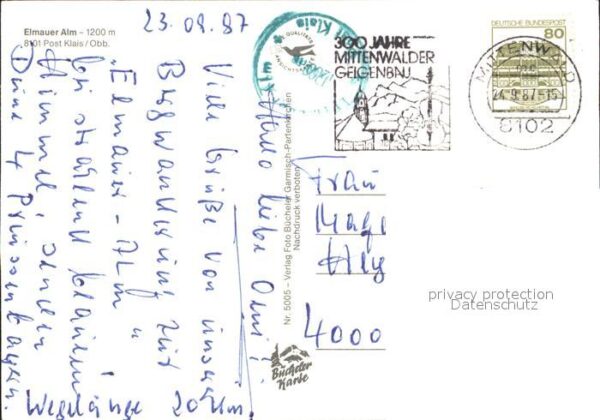 Elmauer Alm - 1200 m
8101 Post Klais / Obb.
23.09.87
Hallo liebe Omi!
Viele Grüße von unserer
Bergwanderung zur
"Elmauer-Alm"
bei strahlend blauem
Himmel, senden
Deine 4 Preussenbayern.
Wegelänge 20 km!
Nr. 5005 - Verlag Foto Bücheler Garmisch-Partenkirchen
Nachdruck verboten
Bücheler
Karte
Klais
300 JAHRE
MITTENWALDER
GEIGENBAU
MITTENWALD
24.9.87-15
8102
DEUTSCHE BUNDESPOST
80
Frau
4000
privacy protection
Datenschutz